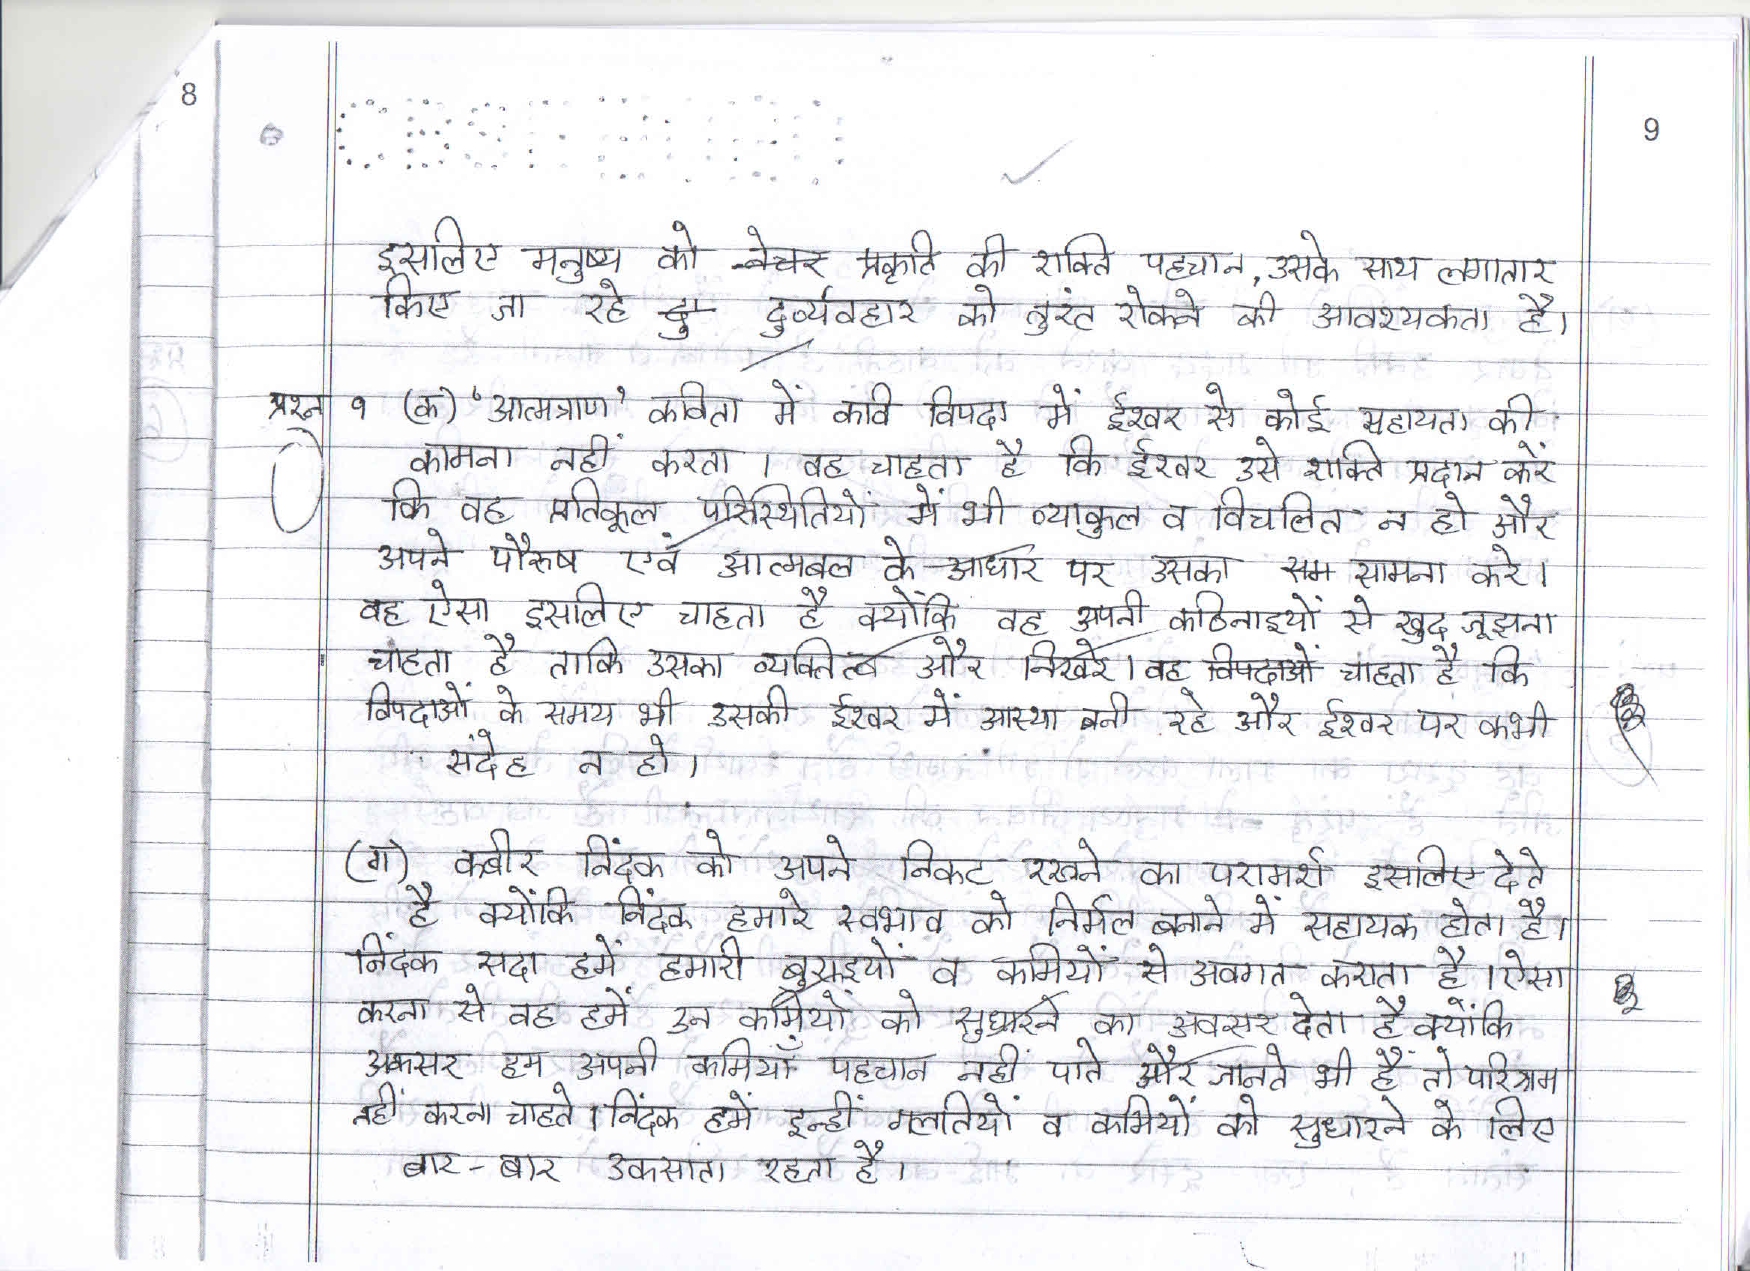 8
9
इसलिए मनुष्य को नेचर प्रकृति की शक्ति पहचान, उसके साथ लगातार
किए जा रहे दु दुर्व्यवहार को तुरंत रोकने की आवश्यकता है।
प्रश्न १ (क) 'आत्मत्राण' कविता में कवि विपदा में ईश्वर से कोई सहायता की
कामना नहीं करता । वह चाहता है कि ईश्वर उसे शक्ति प्रदान करें
कि वह प्रतिकूल परिस्थितियों में भी व्याकुल व विचलित न हो और
अपने पौरुष एवं आत्मबल के आधार पर उसका सम सामना करे।
वह ऐसा इसलिए चाहता है क्योंकि वह अपनी कठिनाइयों से खुद जूझना
चाहता है ताकि उसका व्यक्तित्व और निखरे। वह विपदाओं चाहता है कि
विपदाओं के समय भी उसकी ईश्वर में आस्था बनी रहे और ईश्वर पर कभी
संदेह न हो।
(ग) कबीर निंदक को अपने निकट रखने का परामर्श इसलिए देते
है क्योंकि निंदक हमारे स्वभाव को निर्मल बनाने में सहायक होता है।
निंदक सदा हमें हमारी बुराइयों व कमियों से अवगत कराता है। ऐसा
करना से वह हमें उन कमियों को सुधारने का अवसर देता है क्योंकि
अकसर हम अपनी कमियाँ पहचान नहीं पाते और जानते भी हैं तो परिश्रम
नहीं करना चाहते। निंदक हमें इन्हीं गलतियों व कमियों को सुधारने के लिए
बार-बार उकसाता रहता है।